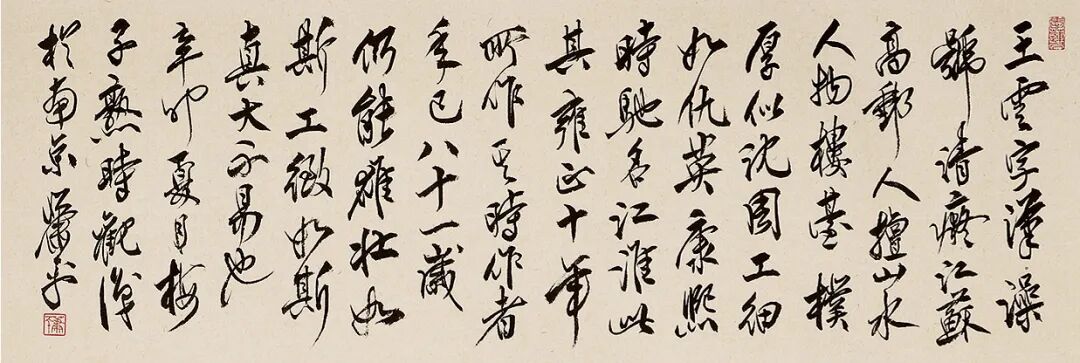 王雲字漢藻
號清癡江蘇
高郵人擅山水
人物樓臺樸
厚似沈周工細
如仇英康熙
時馳名江淮此
其雍正十年
所作其時作者
年已八十一歲
仍能雄壯如
斯工緻如斯
真大不易也
辛卯夏月梅
子熟時觀後
於南京蕭平